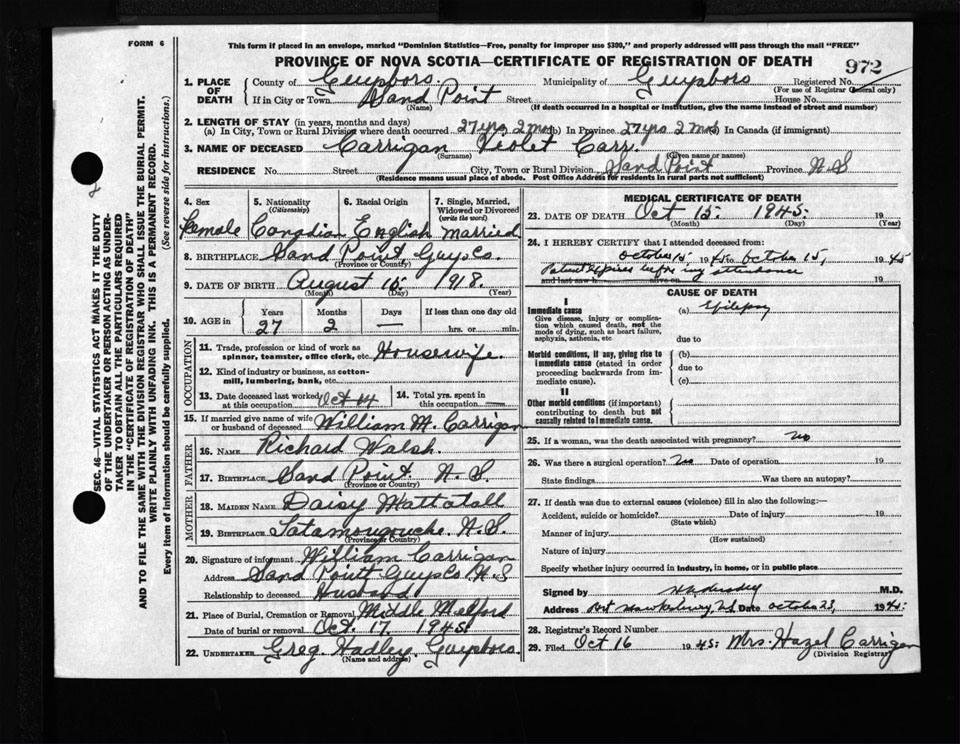 FORM 6
This form if placed in an envelope, marked "Dominion Statistics—Free, penalty for improper use $300," and properly addressed will pass through the mail "FREE"
PROVINCE OF NOVA SCOTIA—CERTIFICATE OF REGISTRATION OF DEATH
972
1. PLACE OF DEATH
County of Guysboro. Municipality of Guysboro Registered No.
(For use of Registrar General only)
If in City or Town Sand Point Street House No.
(Name) (If death occurred in a hospital or institution, give the name instead of street and number)
2. LENGTH OF STAY (in years, months and days)
(a) In City, Town or Rural Division where death occurred 27 yrs 2 Mos (b) In Province 27 yrs 2 Mos (c) In Canada (if immigrant)
3. NAME OF DECEASED Carrigan Violet Carr.
(Surname) (Given name or names)
RESIDENCE No. Street City, Town or Rural Division Sand Point Province N S
(Residence means usual place of abode. Post Office Address for residents in rural parts not sufficient)
4. Sex 5. Nationality (Citizenship) 6. Racial Origin 7. Single, Married, Widowed or Divorced (write the word)
Female Canadian English Married
8. BIRTHPLACE Sand Point, Guys Co.
(Province or Country)
9. DATE OF BIRTH August 15 1918.
(Month) (Day) (Year)
10. AGE in Years Months Days If less than one day old
27 2 — hrs. or min.
OCCUPATION
11. Trade, profession or kind of work as spinner, teamster, office clerk, etc. Housewife.
12. Kind of industry or business, as cotton-mill, lumbering, bank, etc.
13. Date deceased last worked at this occupation Oct 14 14. Total yrs. spent in this occupation
15. If married give name of wife or husband of deceased William M. Carrigan
FATHER
16. NAME Richard Walsh.
17. BIRTHPLACE Sand Point. N. S.
(Province or Country)
MOTHER
18. MAIDEN NAME Daisy Mattatall
19. BIRTHPLACE Tatamougouche. N.S.
(Province or Country)
20. Signature of informant William Carrigan
Address Sand Point Guys Co N.S
Relationship to deceased Husband
21. Place of Burial, Cremation or Removal Middle Melford
Date of burial or removal Oct. 17 1945.
22. UNDERTAKER Greg. Hadley, Guysboro.
(Name and address)
MEDICAL CERTIFICATE OF DEATH
23. DATE OF DEATH Oct 15. 1945. 19
(Month) (Day) (Year)
24. I HEREBY CERTIFY that I attended deceased from:
October 15, 1945 to October 15, 1945
Patient expired before my attendance
and last saw h alive on 19
CAUSE OF DEATH
I
Immediate cause
Give disease, injury or complication which caused death, not the mode of dying, such as heart failure, asphyxia, asthenia, etc
(a) Epilepsy
due to
Morbid conditions, if any, giving rise to immediate cause (stated in order proceeding backwards from immediate cause).
(b)
due to
(c)
II
Other morbid conditions (if important) contributing to death but not causally related to immediate cause.
25. If a woman, was the death associated with pregnancy? No
26. Was there a surgical operation? No Date of operation 19
State findings Was there an autopsy?
27. If death was due to external causes (violence) fill in also the following:—
Accident, suicide or homicide? Date of injury 19
(State which)
Manner of injury
(How sustained)
Nature of injury
Specify whether injury occurred in industry, in home, or in public place
Signed by M.D.
Address Port Hawkesbury, N.S. Date October 23, 1945.
28. Registrar's Record Number
29. Filed Oct 16 1945. Mrs. Hazel Carrigan
(Division Registrar)
SEC. 46—VITAL STATISTICS ACT MAKES IT THE DUTY
OF THE UNDERTAKER OR PERSON ACTING AS UNDER-
TAKER TO OBTAIN ALL THE PARTICULARS REQUIRED
IN THE "CERTIFICATE OF REGISTRATION OF DEATH"
AND TO FILE THE SAME WITH THE DIVISION REGISTRAR WHO SHALL ISSUE THE BURIAL PERMIT.
WRITE PLAINLY WITH UNFADING INK. THIS IS A PERMANENT RECORD.
Every item of information should be carefully supplied. (See reverse side for instructions.)